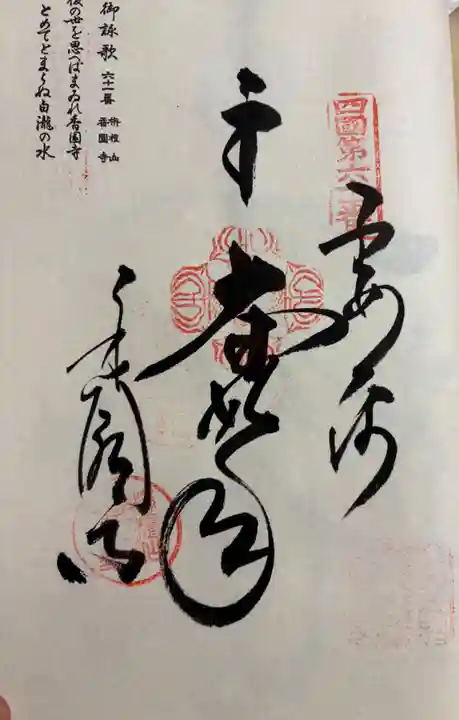 四國第六 番
奉納
大日如来
香園寺
御詠歌 六十一番 栴檀山
香園寺
後の世を思へばまゐれ香園寺
とめてとまらぬ白瀧の水